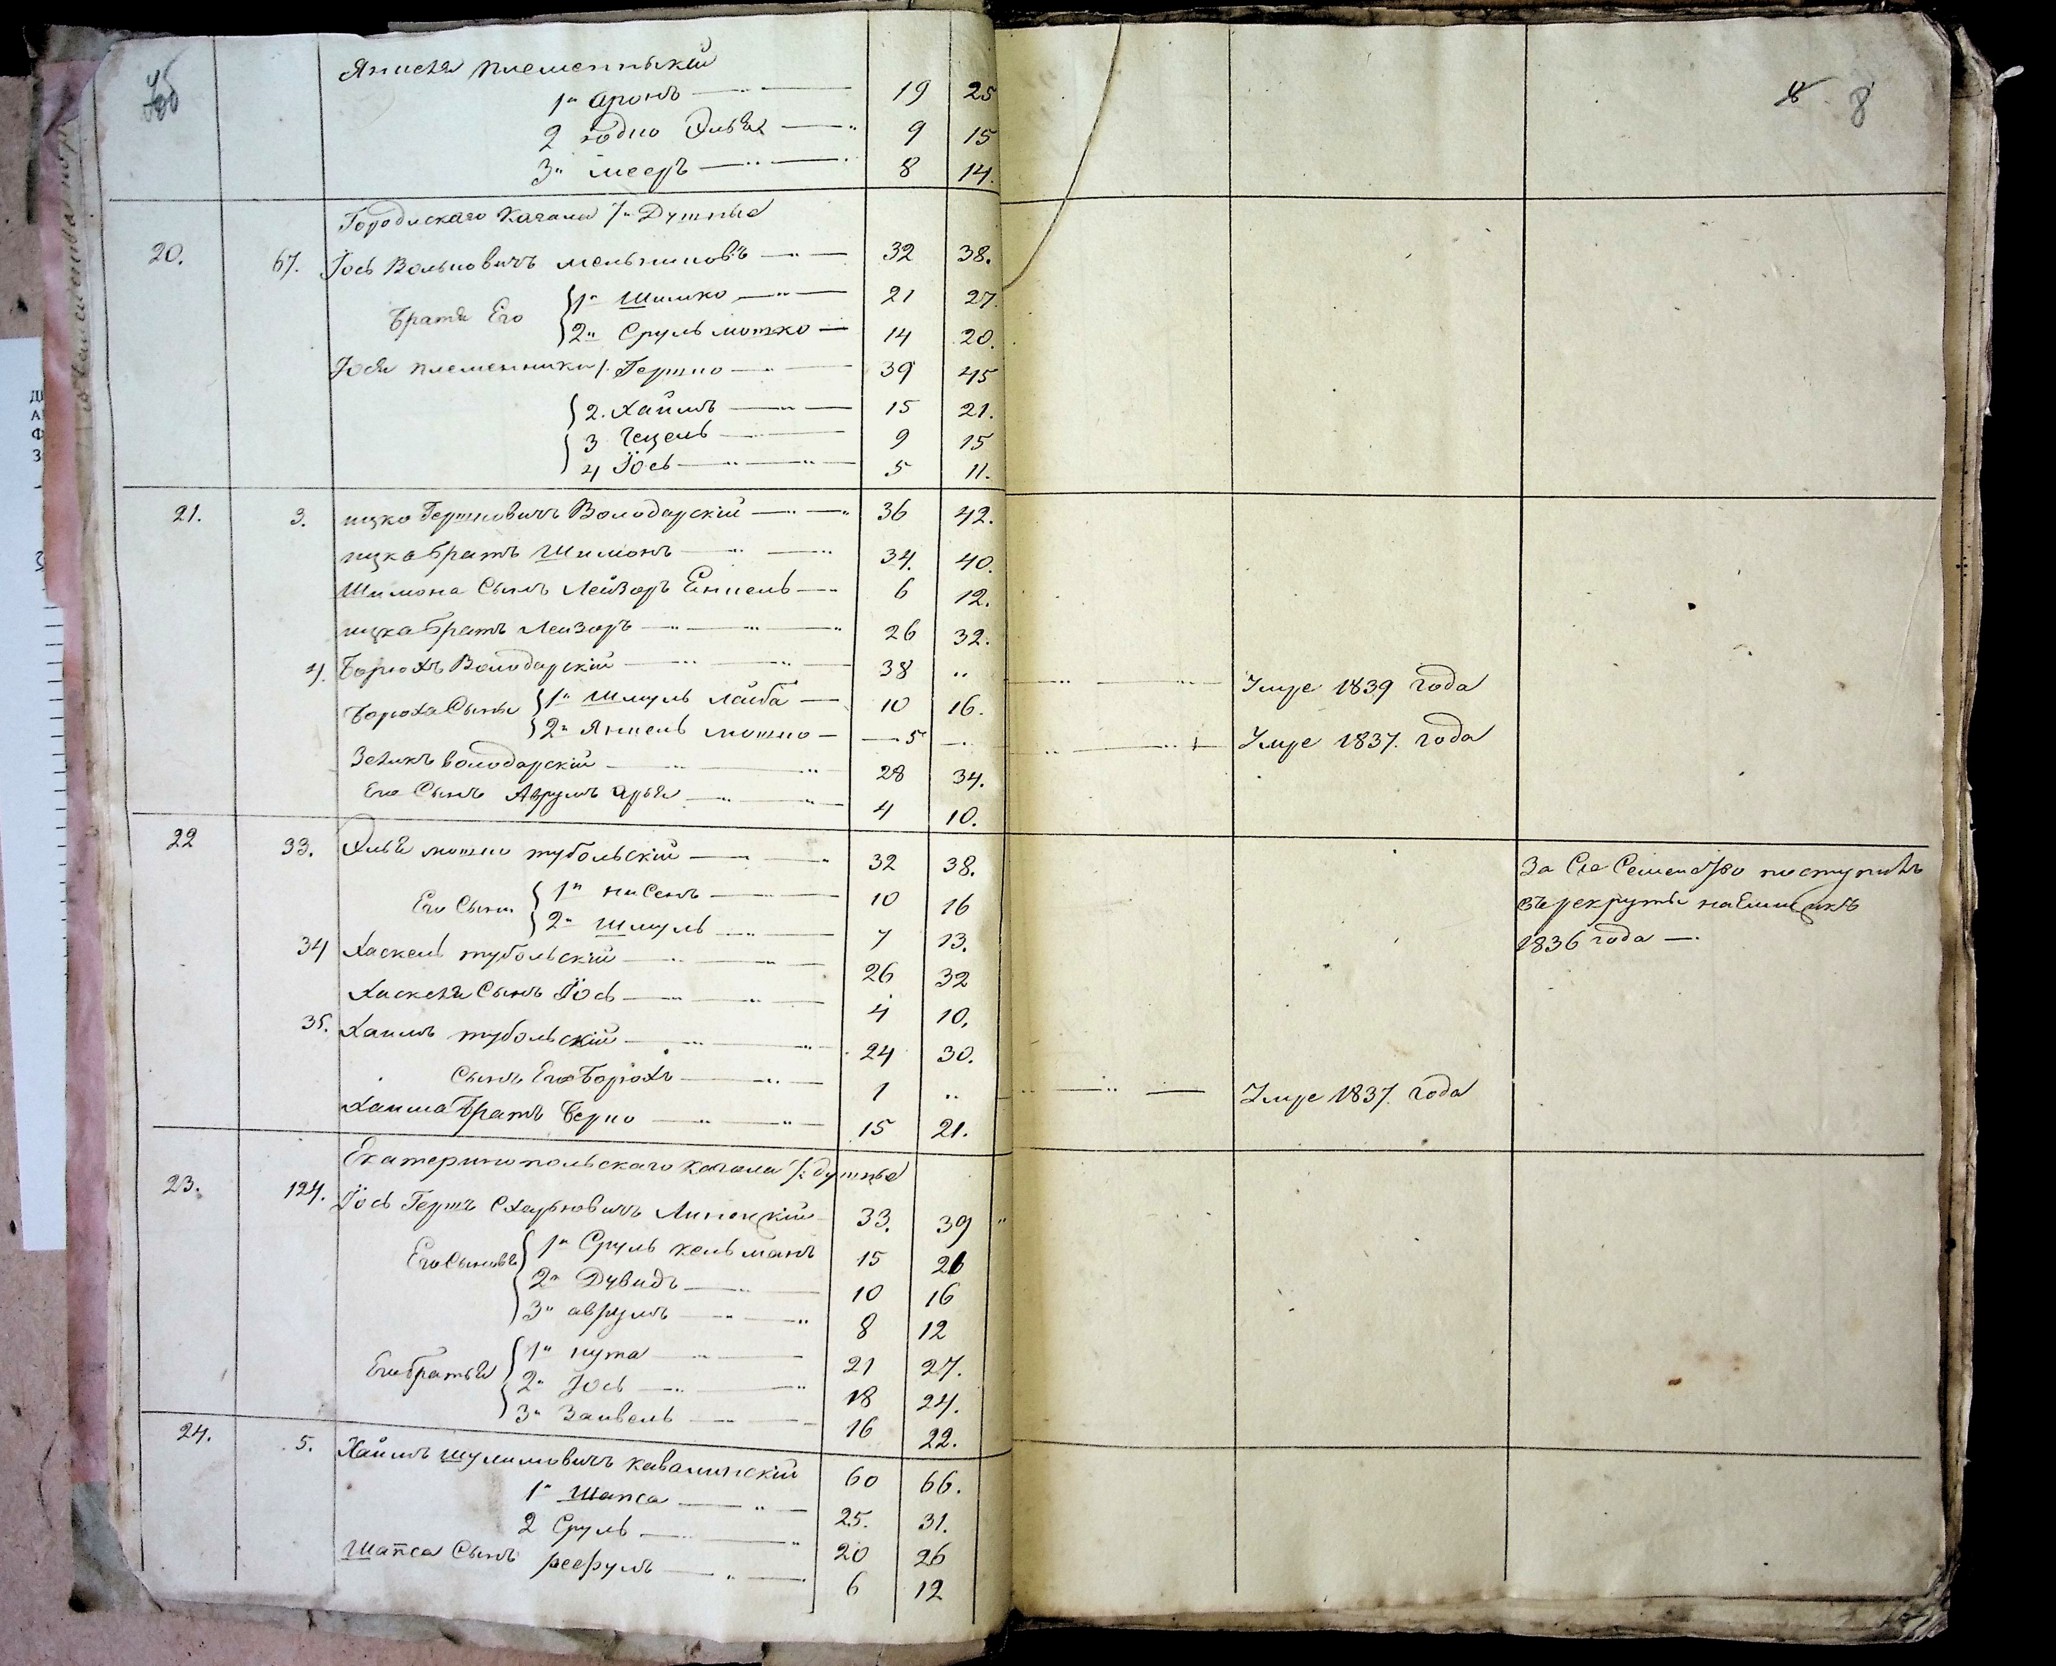 8
Янкеля племенныкій
1" Аронъ 19 25
2 Юдко Эльва 9 15
3" Меерь 8 14.
Городискаго Кагала 7" Душные
20. 67. Іось Вольковичъ Мельниковъ 32 38.
Братя Его 1" Шимко 21 27.
2" Сруль Мошко 14 20.
Іося племенники 1. Гершко 39 45
2. Хаимъ 15 21.
3 Гецель 9 15
4 Іось 5 11.
21. 3. ицко Гершковичъ Володарскій 36 42.
ицка братъ Шимонъ 34. 40.
Шимона Сынъ Лейзоръ Енкель 6 12.
ицка братъ Лейзоръ 26 32.
4. Борюхъ Володарскій 38 Умре 1839 года
Борюха Сыны 1" Шмуль Лейба 10 16.
2" Янкель Мошко 5 Умре 1837. года
Зеликъ володарскій 28 34.
Его Сынъ Аврумъ Арья 4 10.
22 33. Эльва мошко тубольскій 32 38. За Сіе Семейство поступилъ
Его Сыны 1" Нисенъ 10 16 въ рекруты наемщикъ
2" Шмуль 7 13. 1836 года
34 Хаскель тубольскій 26 32
Хаскеля Сынъ Іось 4 10.
35. Хаимъ тубольскій 24 30.
Сынъ Его Борюхъ 1 Умре 1837. года
Хаима Братъ Берко 15 21.
Екатеринопольскаго Кагала 7: душные
23. 124. Іось Гершъ Липецкій 33. 39
Его Сыновья 1" Сруль Кельманъ 15 21
2" Дувидъ 10 16
3" аврумъ 8 12
Его братья 1" нута 21 27.
2" Іось 18 24.
3" Зайвель 16 22.
24. 5. Хаимъ Шулимовичъ Кавалинскій 60 66.
1" Шапса 25. 31.
2 Сруль 20 26
Шапса Сынъ 6 12